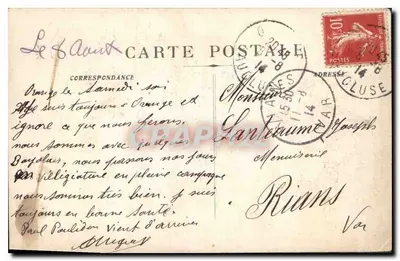 Le 8 Août
CARTE POSTALE
CORRESPONDANCE
ADRESSE
10
Orange le Samedi soi
suis toujours à Orange et
ignore ce que nous ferons.
nous sommes avec quelques
nous passons nos jours
en villégiature en pleine campagne
nous sommes très bien. Je suis
toujours en bonne santé.
Paul vient d'arriver
Monsieur
Lanteaume Joseph
Menuiserie
Rians
Var
14
VAUCLUSE
11-8
14
VAR
14
CLUSE